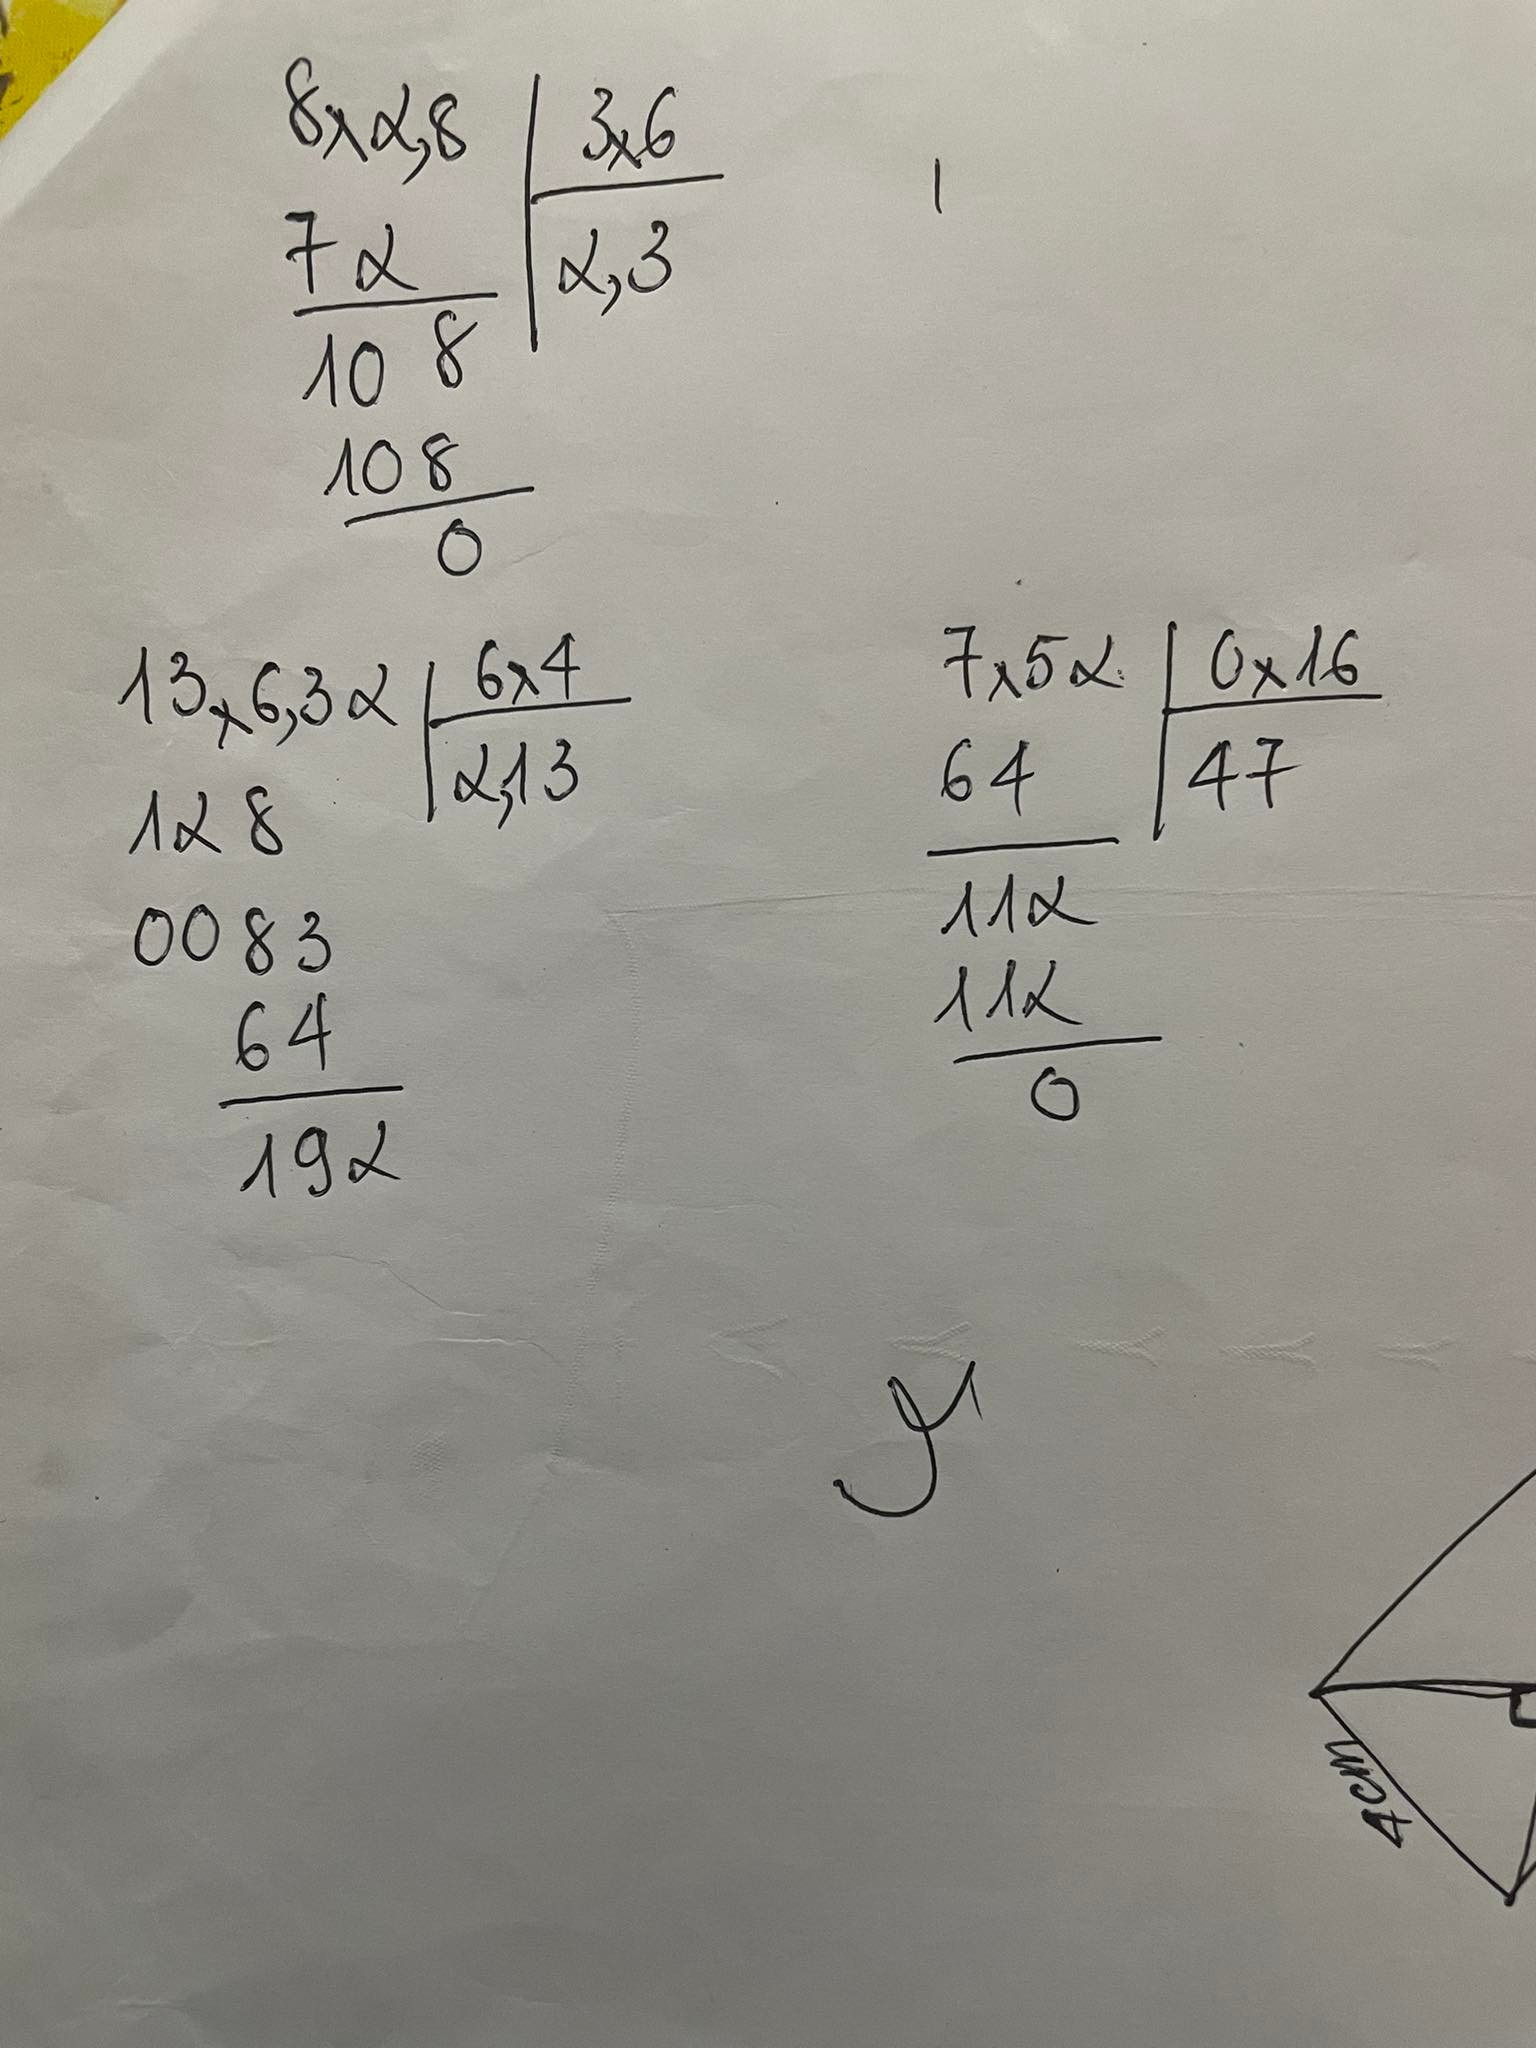 8x2,8 | 3x6
72 | 2,3
10 8
108
0
13x6,32 | 6x4
128 | 2,13
0083
64
192
7x52 | 0x16
64 | 47
112
112
0
y
7cm